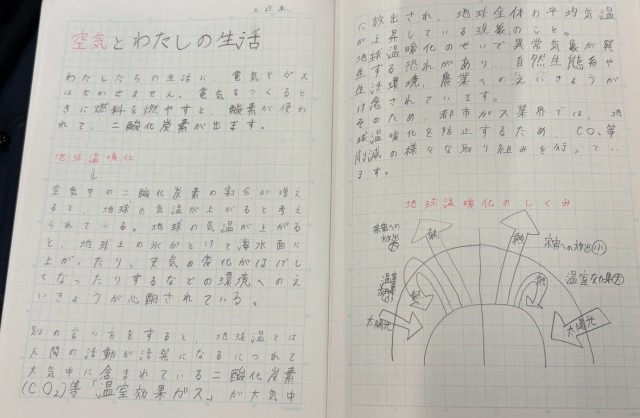 空気とわたしの生活
わたしたちの生活に、電気やガス
は欠かせません。電気をつくると
きに燃料を燃やすと、酸素が使わ
れて、二酸化炭素が出ます。
地球温暖化
↓
空気中の二酸化炭素の割合が増え
ると、地球の気温が上がると考え
られている。地球の気温が上がる
と、地球上の氷がとけて海水面に
上がったり、天気の変化がはげし
くなったりするなどの環境へのえ
いきょうが心配されている。
別の言い方をすると、地球温とは
人間の活動が活発になるにつれて
大気中に含まれている二酸化炭素
(CO2)等「温室効果ガス」が大気中
に放出され、地球全体の平均気温
が上昇している現象のこと。
地球温暖化のせいで異常気象が発
生する恐れがあり、自然生態系や
生活環境、農業へのえいきょうが
は含されています。
そのため、都市ガス業界では、地
球温暖化を防止するため、CO2等
削減の様々な取り組みを行ってい
ます。
地球温暖化のしくみ
宇宙への
放出大
熱
熱
宇宙への放出小
温室
効果小
熱
熱
温室効果大
太陽光
太陽光